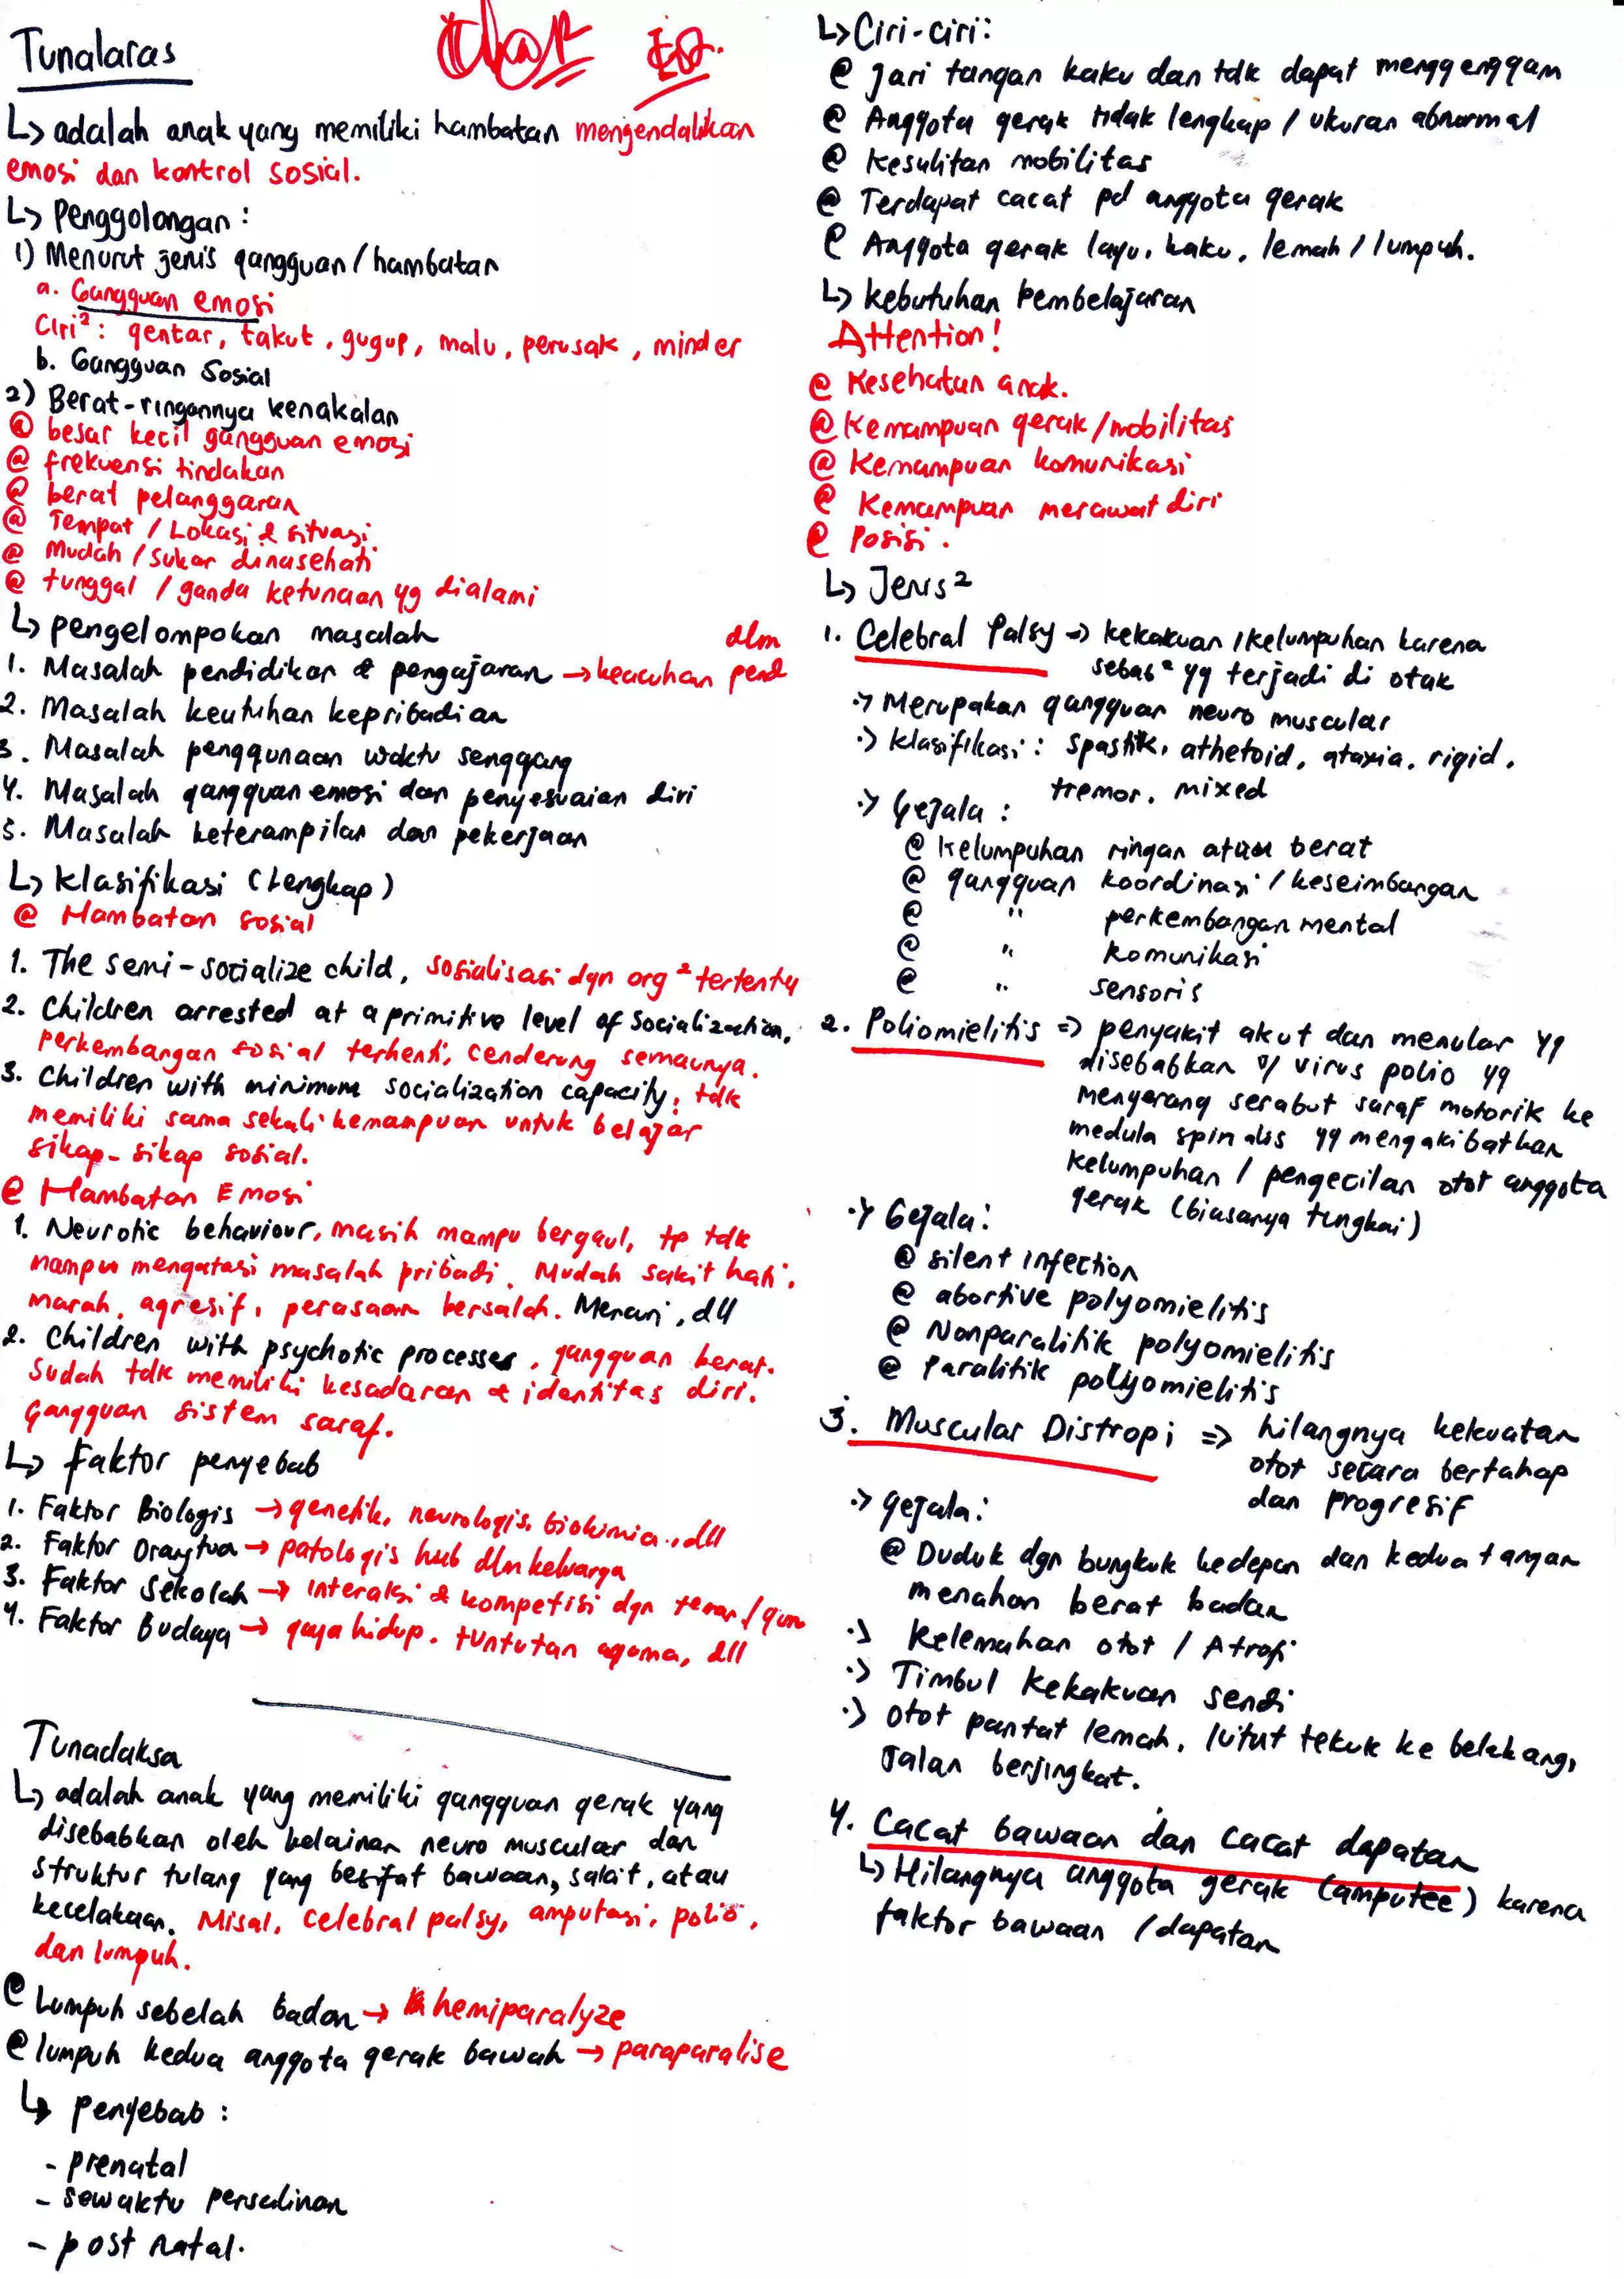 Tunalaras
↳ adalah anak yang memiliki hambatan mengendalikan
emosi dan kontrol sosial.
↳ Penggolongan :
1) Menurut jenis gangguan / hambatan
a. Gangguan emosi
Ciri² : gentar, takut, gugup, malu, perusak, minder
b. Gangguan Sosial
2) Berat-ringannya kenakalan
@ besar kecil gangguan emosi
@ frekuensi tindakan
@ berat pelanggaran
@ Tempat / Lokasi & situasi
@ Mudah / sukar dinasehati
@ tunggal / ganda ketunaan yg dialami
↳ pengelompokan masalah
1. Masalah pendidikan & pengajaran → keacuhan dlm pend
2. Masalah keutuhan kepribadian
3. Masalah penggunaan waktu senggang
4. Masalah gangguan emosi dan penyesuaian diri
5. Masalah keterampilan dan pekerjaan
↳ Klasifikasi (Lengkap)
@ Hambatan sosial
1. The semi-socialize child, sosialisasi dgn org² tertentu
2. Children arrested at a primitive level of Socialization,
perkembangan sosial terhenti, cenderung semaunya.
3. Children with minimum socialization capacity, tdk
memiliki sama sekali kemampuan untuk belajar
sikap-sikap sosial.
@ Hambatan Emosi
1. Neurotic behaviour, masih mampu bergaul, tp tdk
mampu mengatasi masalah pribadi. Mudah sakit hati,
marah, agresif, perasaan bersalah. Mencuri, dll
2. Children with psychotic processes, gangguan berat.
Sudah tdk memiliki kesadaran & identitas diri.
Gangguan sistem saraf.
↳ Faktor penyebab
1. Faktor Biologis → genetik, neurologis, biokimia., dll
2. Faktor Orangtua → patologis hub dlm keluarga
3. Faktor Sekolah → interaksi & kompetisi dgn teman / guru
4. Faktor Budaya → gaya hidup, tuntutan agama, dll
Tunadaksa
↳ adalah anak yang memiliki gangguan gerak yang
disebabkan oleh kelainan neuro muscular dan
struktur tulang yang besifat bawaan, sakit, atau
kecelakaan. Misal, celebral palsy, amputasi, polio,
dan lumpuh.
@ Lumpuh sebelah badan → hemiparalyze
@ lumpuh kedua anggota gerak bawah → paraparalise
↳ penyebab :
- prenatal
- sewaktu persalinan
- post natal.
↳ Ciri-ciri :
@ Jari tangan kaku dan tdk dapat menggenggam
@ Anggota gerak tidak lengkap / ukuran abnormal
@ Kesulitan mobilitas
@ Terdapat cacat pd anggota gerak
@ Anggota gerak layu, kaku, lemah / lumpuh.
↳ kebutuhan Pembelajaran
Attention!
@ Kesehatan anak.
@ Kemampuan gerak / mobilitas
@ Kemampuan komunikasi
@ Kemampuan merawat diri
@ Posisi.
↳ Jenis²
1. Celebral Palsy => kekakuan / kelumpuhan karena
sebab² yg terjadi di otak
·> Merupakan gangguan neuro muscular
·> klasifikasi : Spastik, athetoid, ataxia, rigid,
tremor, mixed
·> Gejala :
@ Kelumpuhan ringan atau berat
@ gangguan koordinasi / keseimbangan
@ " perkembangan mental
@ " komunikasi
@ " sensoris
2. Poliomielitis => penyakit akut dan menular yg
disebabkan o/ virus polio yg
menyerang serabut saraf motorik ke
medula spinalis yg mengakibatkan
kelumpuhan / pengecilan otot anggota
gerak (biasanya tungkai)
·> Gejala :
@ silent infection
@ abortive polyomielitis
@ Nonparalitik polyomielitis
@ Paralitik polyomielitis
3. Muscular Distropi => hilangnya kekuatan
otot secara bertahap
dan progresif
·> gejala :
@ Duduk dgn bungkuk kedepan dan kedua tangan
menahan berat badan
·> Kelemahan otot / Atrofi
·> Timbul Kekakuan sendi
·> Otot pantat lemah, lutut tekuk ke belakang,
jalan berjingkat.
4. Cacat bawaan dan cacat dapatan
↳ Hilangnya anggota gerak (amputee) karena
faktor bawaan / dapatan